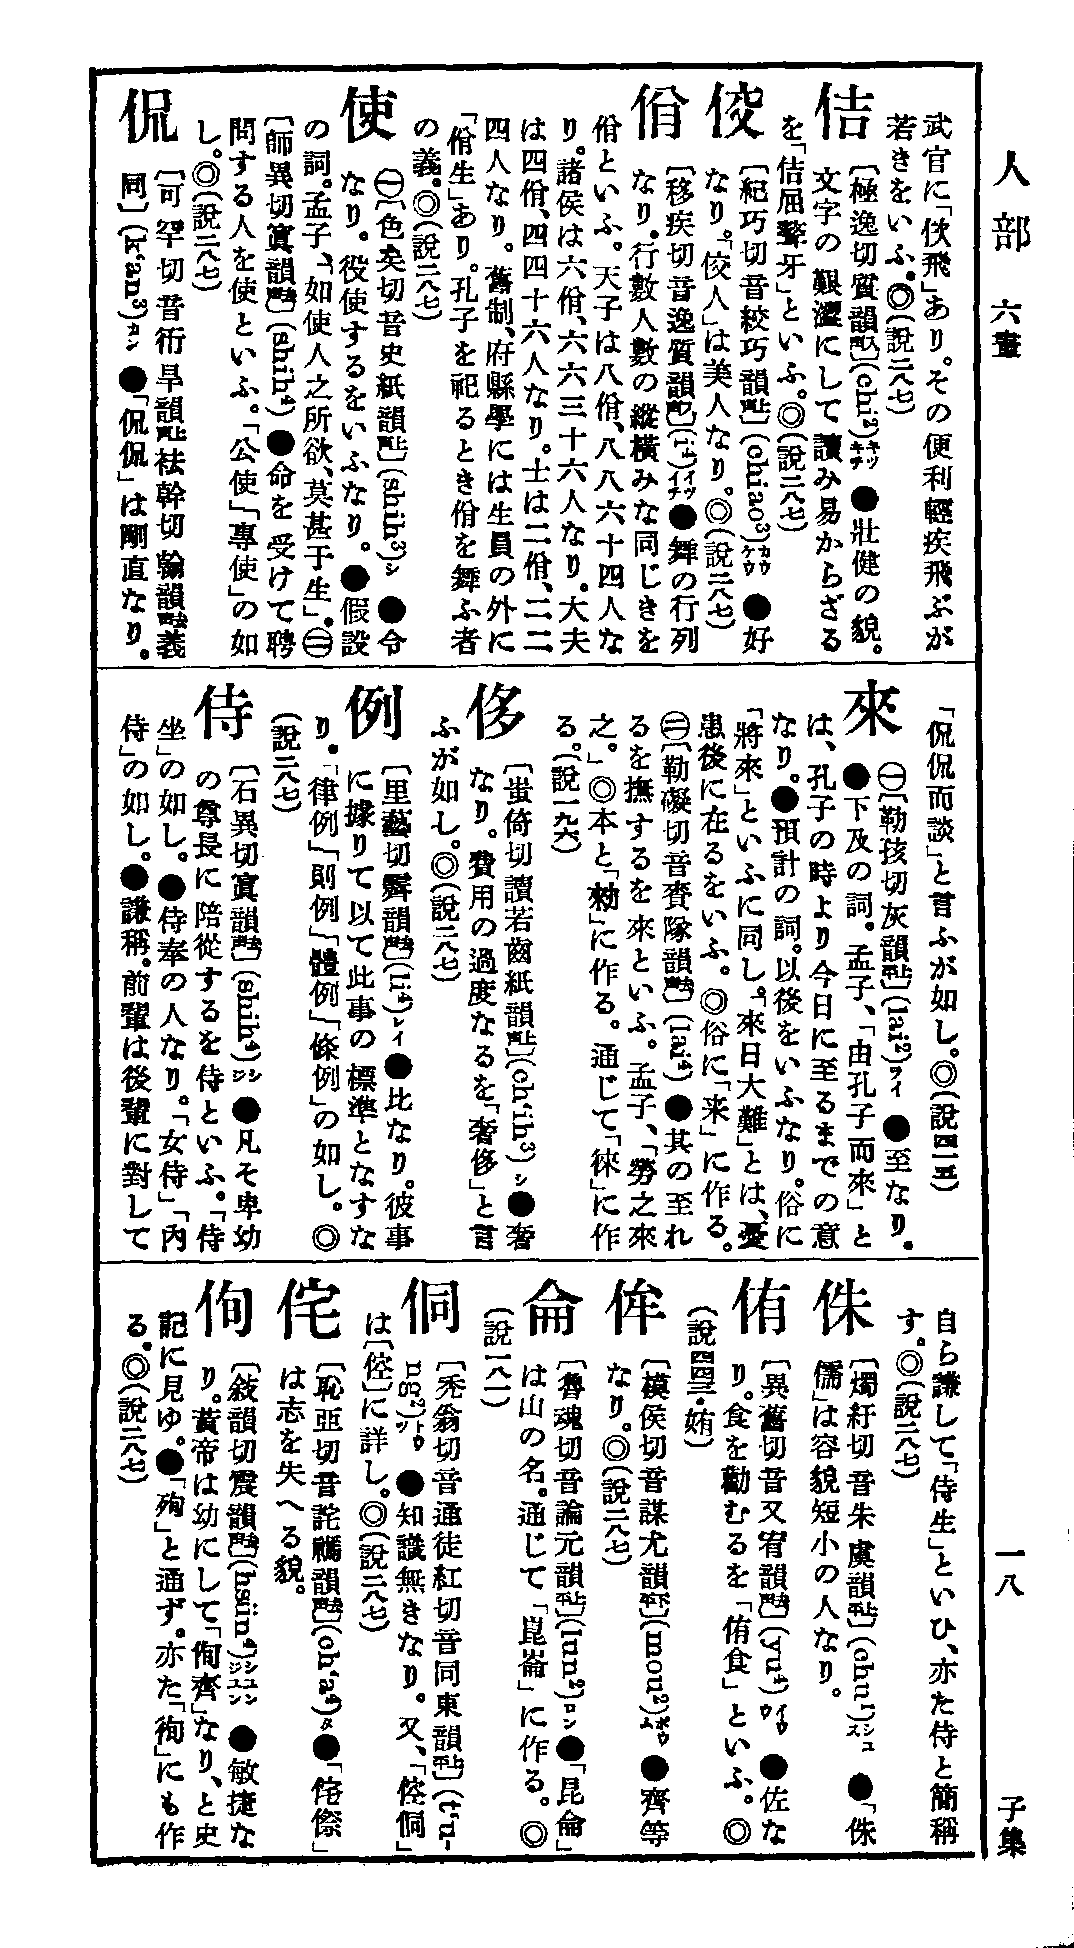 人部 六畫
一八
子集
武官に「佽飛」あり。その便利輕疾飛ぶが
若きをいふ。◎(說二八七)
佶
〔極逸切質韻〕(chi²)キツ キチ ●壯健の貌。
文字の艱澀にして讀み易からざる
を「佶屈聱牙」といふ。◎(說二八七)
佼
〔紀巧切音絞巧韻〕(chiao³)カウ ケウ ●好
なり。「佼人」は美人なり。◎(說二八七)
佾
〔移疾切音逸質韻〕(i⁴)イツ イチ ●舞の行列
なり。行數人數の縱橫みな同じきを
佾といふ。天子は八佾、八八六十四人な
り。諸侯は六佾、六六三十六人なり。大夫
は四佾、四四十六人なり。士は二佾、二二
四人なり。舊制、府縣學には生員の外に
「佾生」あり。孔子を祀るとき佾を舞ふ者
の義。◎(說二八七)
使
㊀〔色矣切音史紙韻〕(shih³)シ ●令
なり。役使するをいふなり。●假設
の詞。孟子、「如使人之所欲、莫甚于生」。㊁
〔師異切寘韻〕(shih⁴) ●命を受けて聘
問する人を使といふ。「公使」「專使」の如
し。◎(說二八七)
侃
〔可罕切音衎旱韻祛幹切翰韻義
同〕(k'an³)カン ●「侃侃」は剛直なり。
「侃侃而談」と言ふが如し。◎(說四一五)
來
㊀〔勒孩切灰韻〕(lai²)ライ ●至なり。
●下及の詞。孟子、「由孔子而來」と
は、孔子の時より今日に至るまでの意
なり。●預計の詞。以後をいふなり。俗に
「將來」といふに同し。「來日大難」とは、憂
患後に在るをいふ。◎俗に「来」に作る。
㊁〔勒礙切音賚隊韻〕(lai⁴) ●其の至れ
るを撫するを來といふ。孟子、「勞之來
之。」◎本と「勑」に作る。通じて「徠」に作
る。(說一九六)
侈
〔蚩倚切讀若齒紙韻〕(ch'ih³)シ ●奢
なり。費用の過度なるを「奢侈」と言
ふが如し。◎(說二八七)
例
〔里藝切霽韻〕(li⁴)レイ ●比なり。彼事
に據りて以て此事の標準となすな
り。「律例」「則例」「體例」「條例」の如し。◎
(說二八七)
侍
〔石異切寘韻〕(shih⁴)シ ジ ●凡そ卑幼
の尊長に陪從するを侍といふ。「侍
坐」の如し。●侍奉の人なり。「女侍」「內
侍」の如し。●謙稱。前輩は後輩に對して
自ら謙して「侍生」といひ、亦た侍と簡稱
す。◎(說二八七)
侏
〔燭紆切音朱虞韻〕(chu¹)シュ ス ●「侏
儒」は容貌短小の人なり。
侑
〔異舊切音又宥韻〕(yu⁴)イウ ウ ●佐な
り。食を勸むるを「侑食」といふ。◎
(說四四三・姷)
侔
〔模侯切音謀尤韻〕(mou²)ボウ ム ●齊等
なり。◎(說二八七)
侖
〔魯魂切音論元韻〕(lun²)ロン ●「昆侖」
は山の名。通じて「崑崙」に作る。◎
(說一八一)
侗
〔禿翁切音通徒紅切音同東韻〕(t'u-
ng²)トウ ツ ●知識無きなり。又、「倥侗」
は〔倥〕に詳し。◎(說二八七)
侘
〔恥亞切音詫禡韻〕(ch'a⁴)タ ●「侘傺」
は志を失へる貌。
侚
〔敍韻切震韻〕(hsün⁴)シュン ジュン ●敏捷な
り。黃帝は幼にして「侚齊」なり、と史
記に見ゆ。●「殉」と通ず。亦た「徇」にも作
る。◎(說二八七)